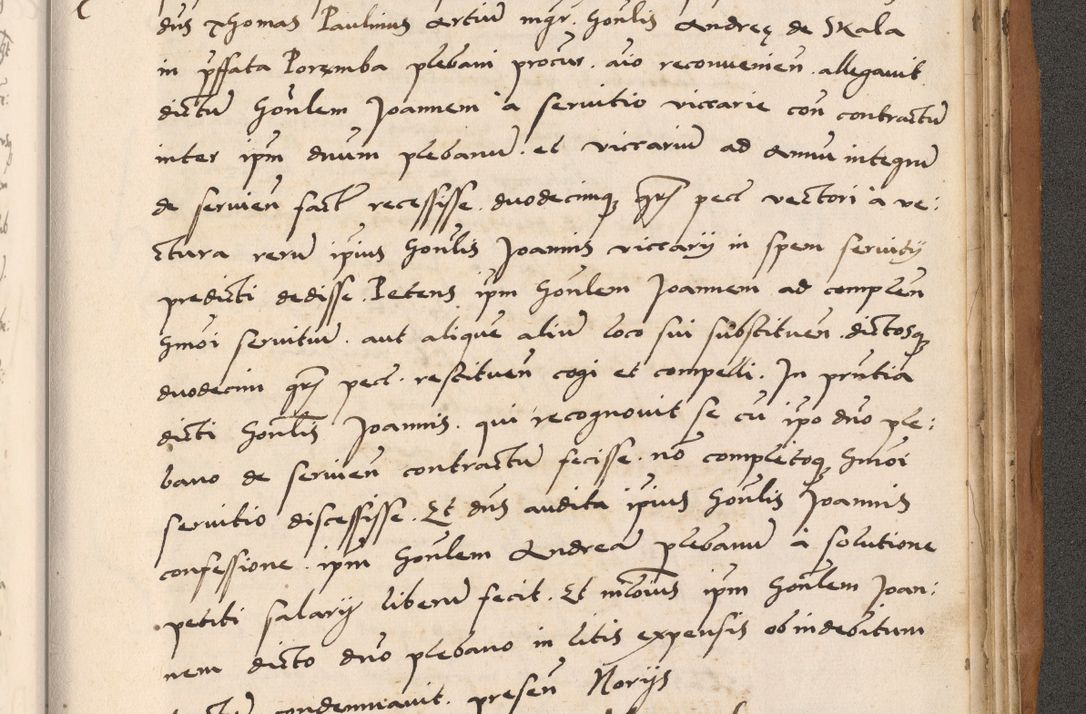 dns Thomas Paulinus Artiu mgr. Honlis Andreę de Skala
in pffata Poremba plebani procur. aio reconuenien. allegauit
dictu Honlem Joannem a seruitio viccarie con contractu
inter ipm dnum plebanu. et viccariu ad annu integru
de seruien fact recessisse. duodecimq gr pec vectori a ve:
ctura reru ipius Honlis Joannis viccarij in spem seruitij
predicti dedisse. Petens ipm Honlem Joannem ad complen
Hmoi seruitiu. aut alique aliu loco sui substituen. dictosq
duodecim gr pec. restituen cogi et compelli. In pntia
dicti Honlis Joannis. qui recognouit se cu ipo dno ple:
bano de seruien contractu fecisse. no completoq Hmoi
seruitio discessisse. Et dns audita ipius Honlis Joannis
confessione. ipm Honlem Andrea plebanu a solutione
petiti salarij liberu fecit. Et ipm Honlem Joan:
nem dicto dno plebano in litis expensis ob indebitum
condemnauit. presen Norijs